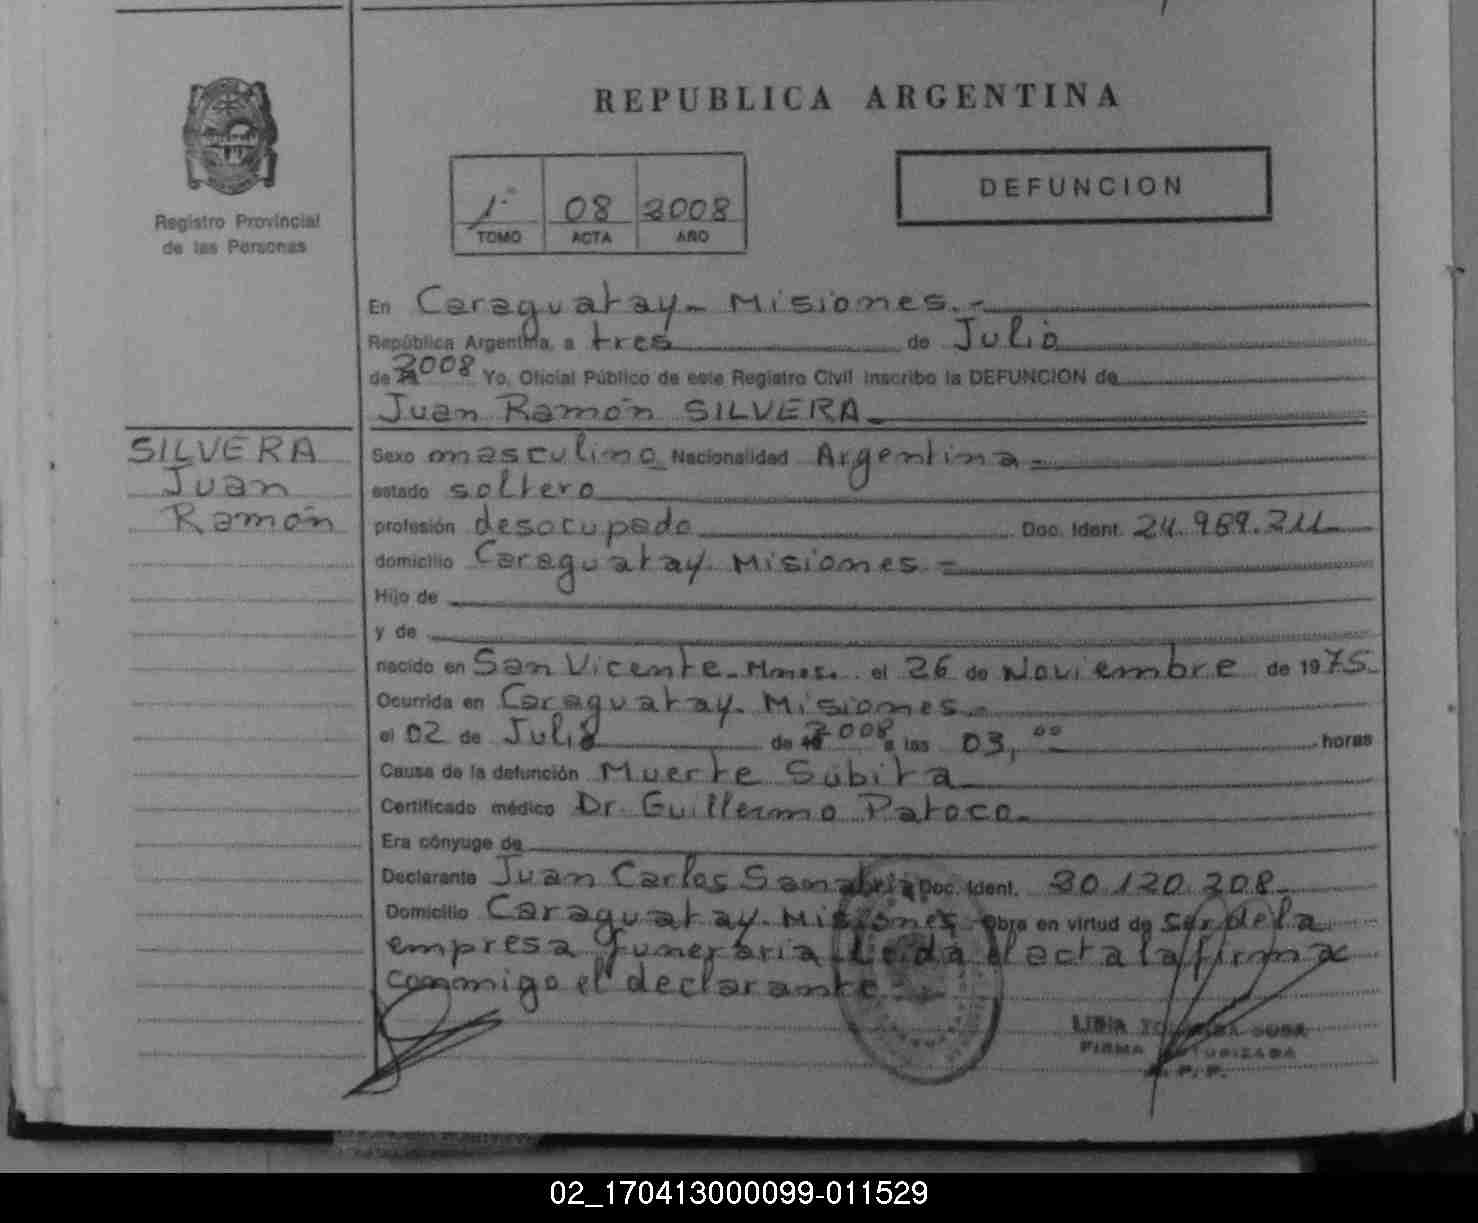 REPUBLICA ARGENTINA
Registro Provincial
de las Personas
1° 08 2008
TOMO ACTA AÑO
DEFUNCION
En Caraguatay - Misiones.-
República Argentina, a tres de Julio
de 2008 Yo, Oficial Público de este Registro Civil inscribo la DEFUNCION de
Juan Ramón SILVERA
SILVERA
Juan
Ramón
Sexo masculino Nacionalidad Argentina
estado soltero
profesión desocupado Doc. Ident. 24.969.211
domicilio Caraguatay Misiones.
Hijo de
y de
nacido en San Vicente - Mnes. el 26 de Noviembre de 1975
Ocurrida en Caraguatay - Misiones
el 02 de Julio de 2008 a las 03,00 horas
Causa de la defunción Muerte Súbita
Certificado médico Dr. Guillermo
Era cónyuge de
Declarante Juan Carlos Sanabria Doc. Ident. 30.120.208
Domicilio Caraguatay - Misiones Obra en virtud de ser de la
empresa funeraria Leida el acta la firma
conmigo el declarante
LIBIA SOSA
FIRMA AUTORIZADA
02_170413000099-011529